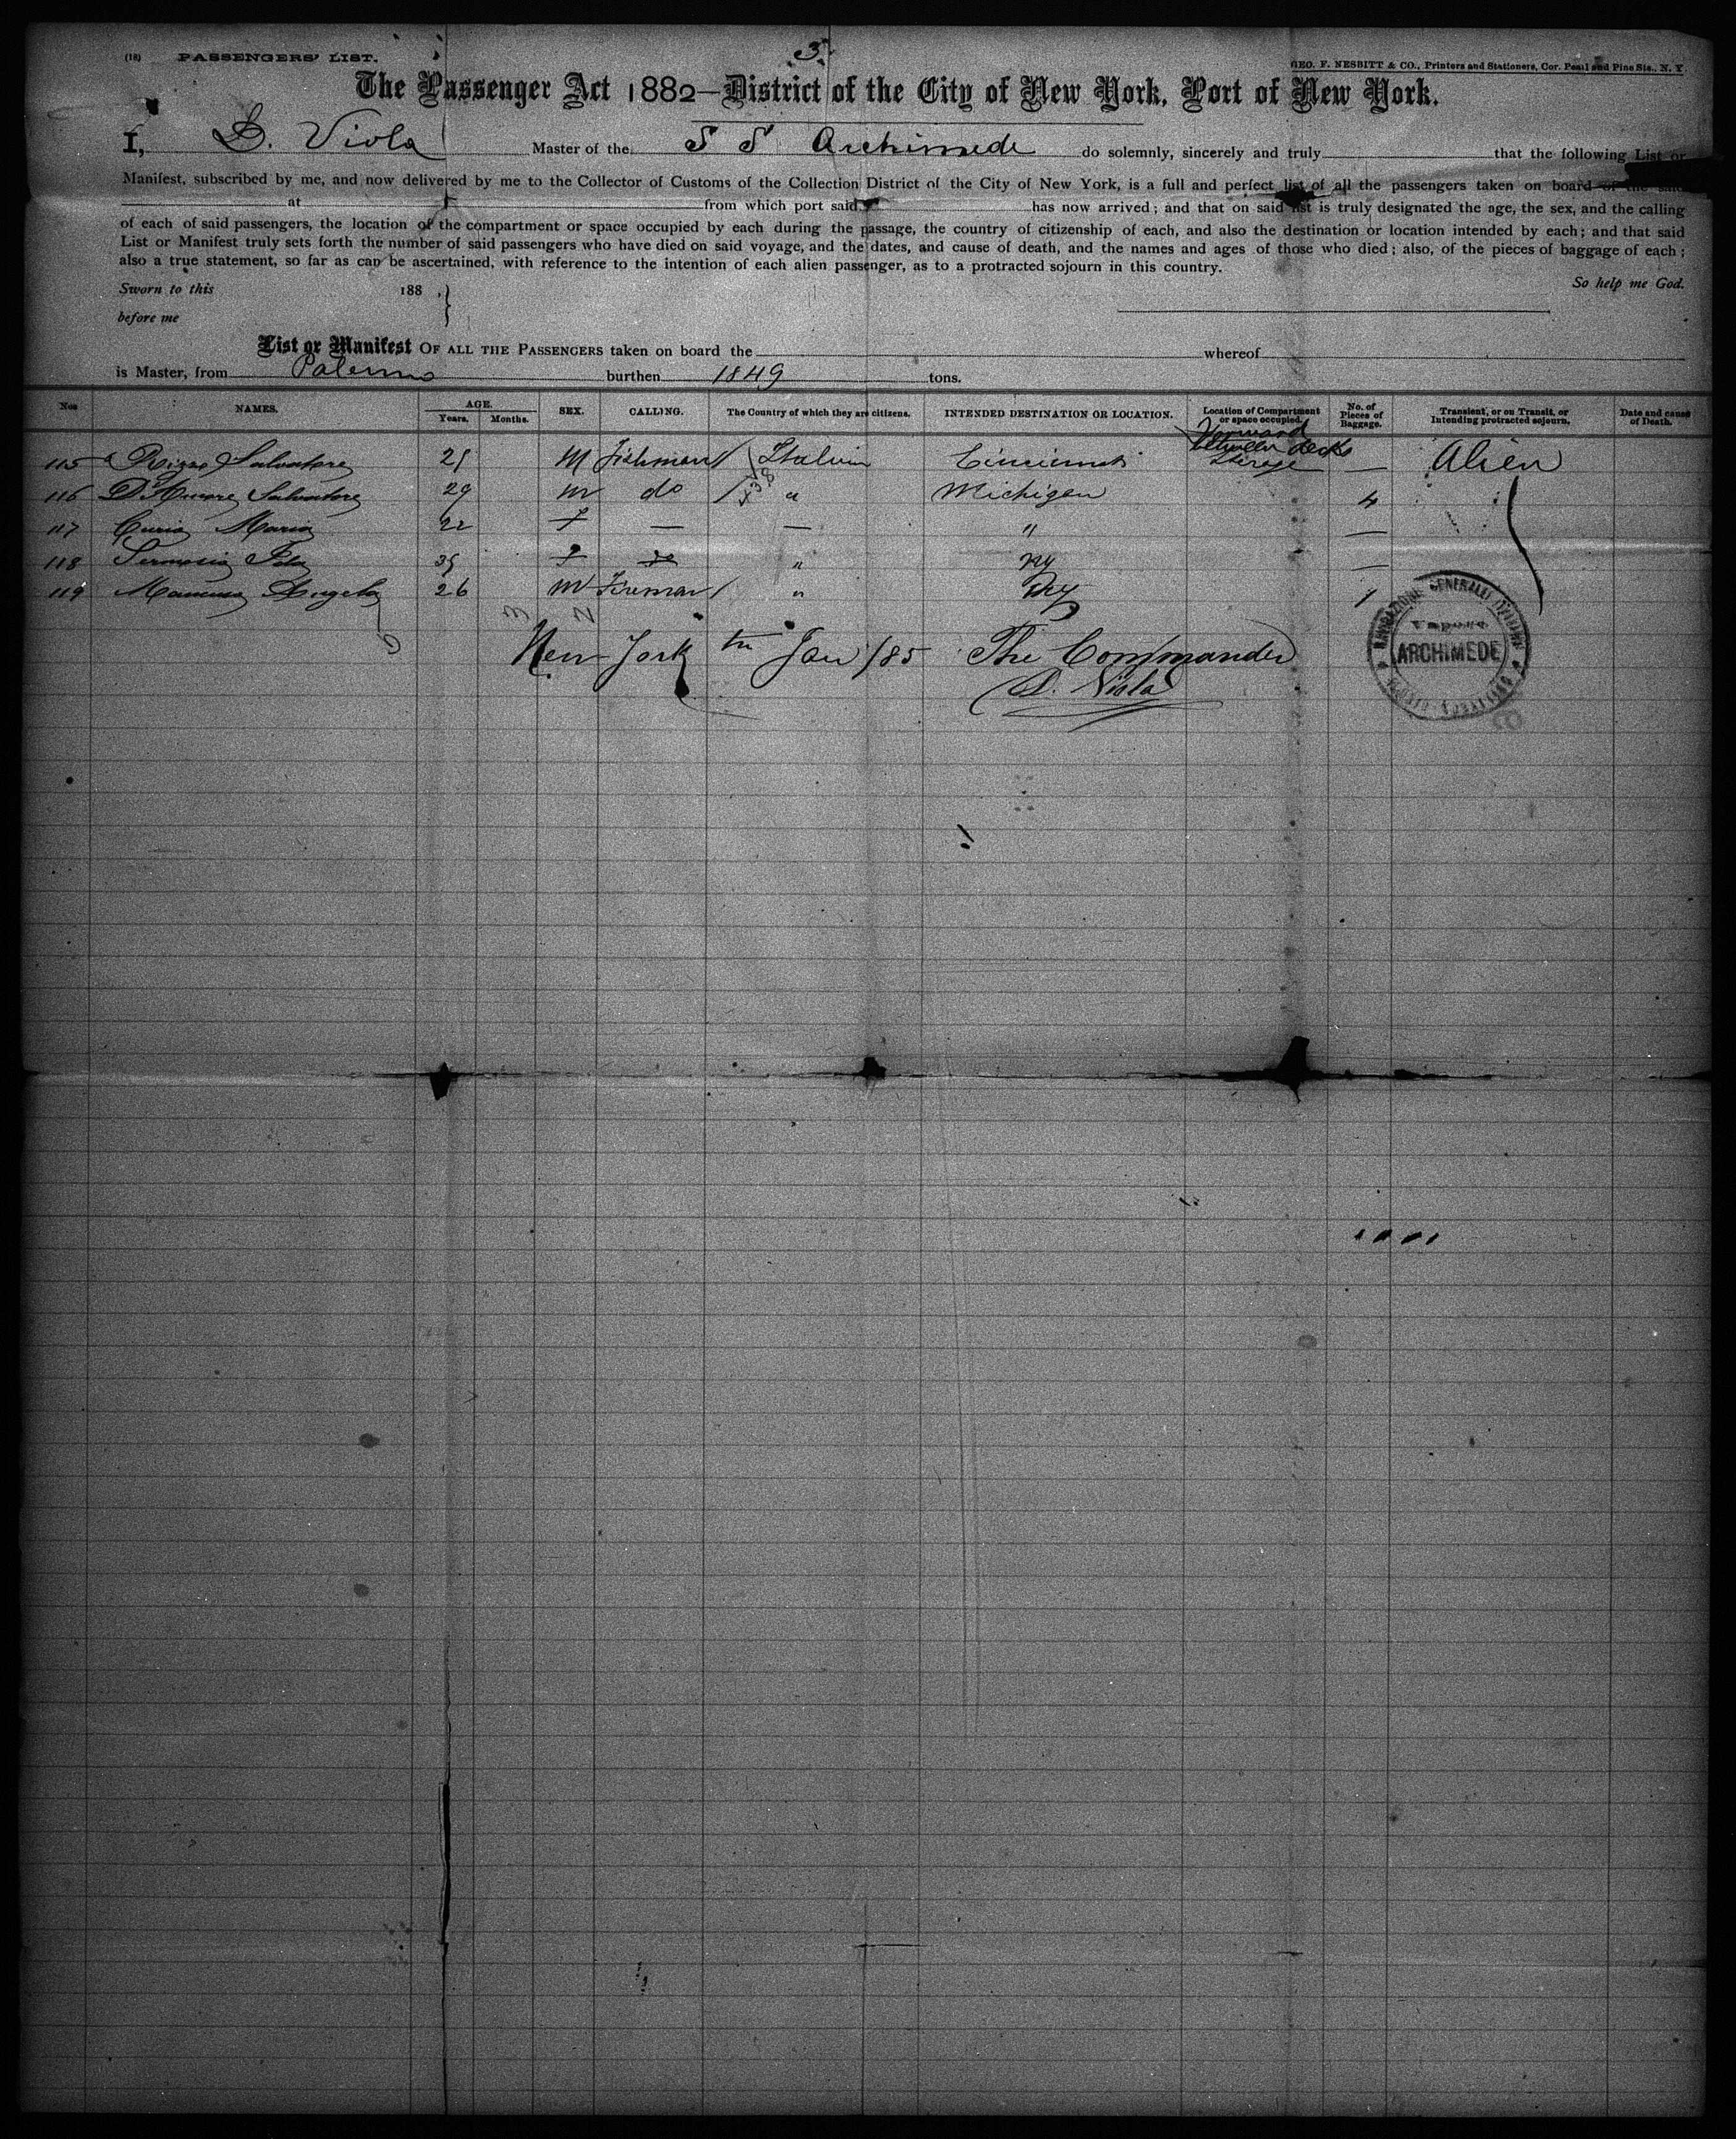 3
(18) PASSENGERS' LIST.
GEO. F. NESBITT & CO., Printers and Stationers, Cor. Pearl and Pine Sts., N. Y.
The Passenger Act 1882—District of the City of New York, Port of New York.
I, D. Viola Master of the S S Archimede do solemnly, sincerely and truly that the following List or
Manifest, subscribed by me, and now delivered by me to the Collector of Customs of the Collection District of the City of New York, is a full and perfect list of all the passengers taken on board of the said
at from which port said has now arrived; and that on said list is truly designated the age, the sex, and the calling
of each of said passengers, the location of the compartment or space occupied by each during the passage, the country of citizenship of each, and also the destination or location intended by each; and that said
List or Manifest truly sets forth the number of said passengers who have died on said voyage, and the dates, and cause of death, and the names and ages of those who died; also, of the pieces of baggage of each;
also a true statement, so far as can be ascertained, with reference to the intention of each alien passenger, as to a protracted sojourn in this country.
Sworn to this 188 . So help me God.
before me
List or Manifest OF ALL THE PASSENGERS taken on board the whereof
is Master, from Palermo burthen 1849 tons.
Nos NAMES. AGE. Years. Months. SEX. CALLING. The Country of which they are citizens. INTENDED DESTINATION OR LOCATION. Location of Compartment or space occupied. No. of Pieces of Baggage. Transient, or on Transit, or Intending protracted sojourn. Date and cause of Death.
Forward
between decks
115 Rizzo Salvatore M Fishman Cincinnati Alien
116 D'Amore Salvatore 29 m do " Michigan 4 "
117 Maria 22 f — — " —
118 f do " NY —
119 Angelo 26 m Fireman " NY 1
New York Jan /85 The Commander
D. Viola
NAVIGAZIONE GENERALE ITALIANA
Vapore
ARCHIMEDE